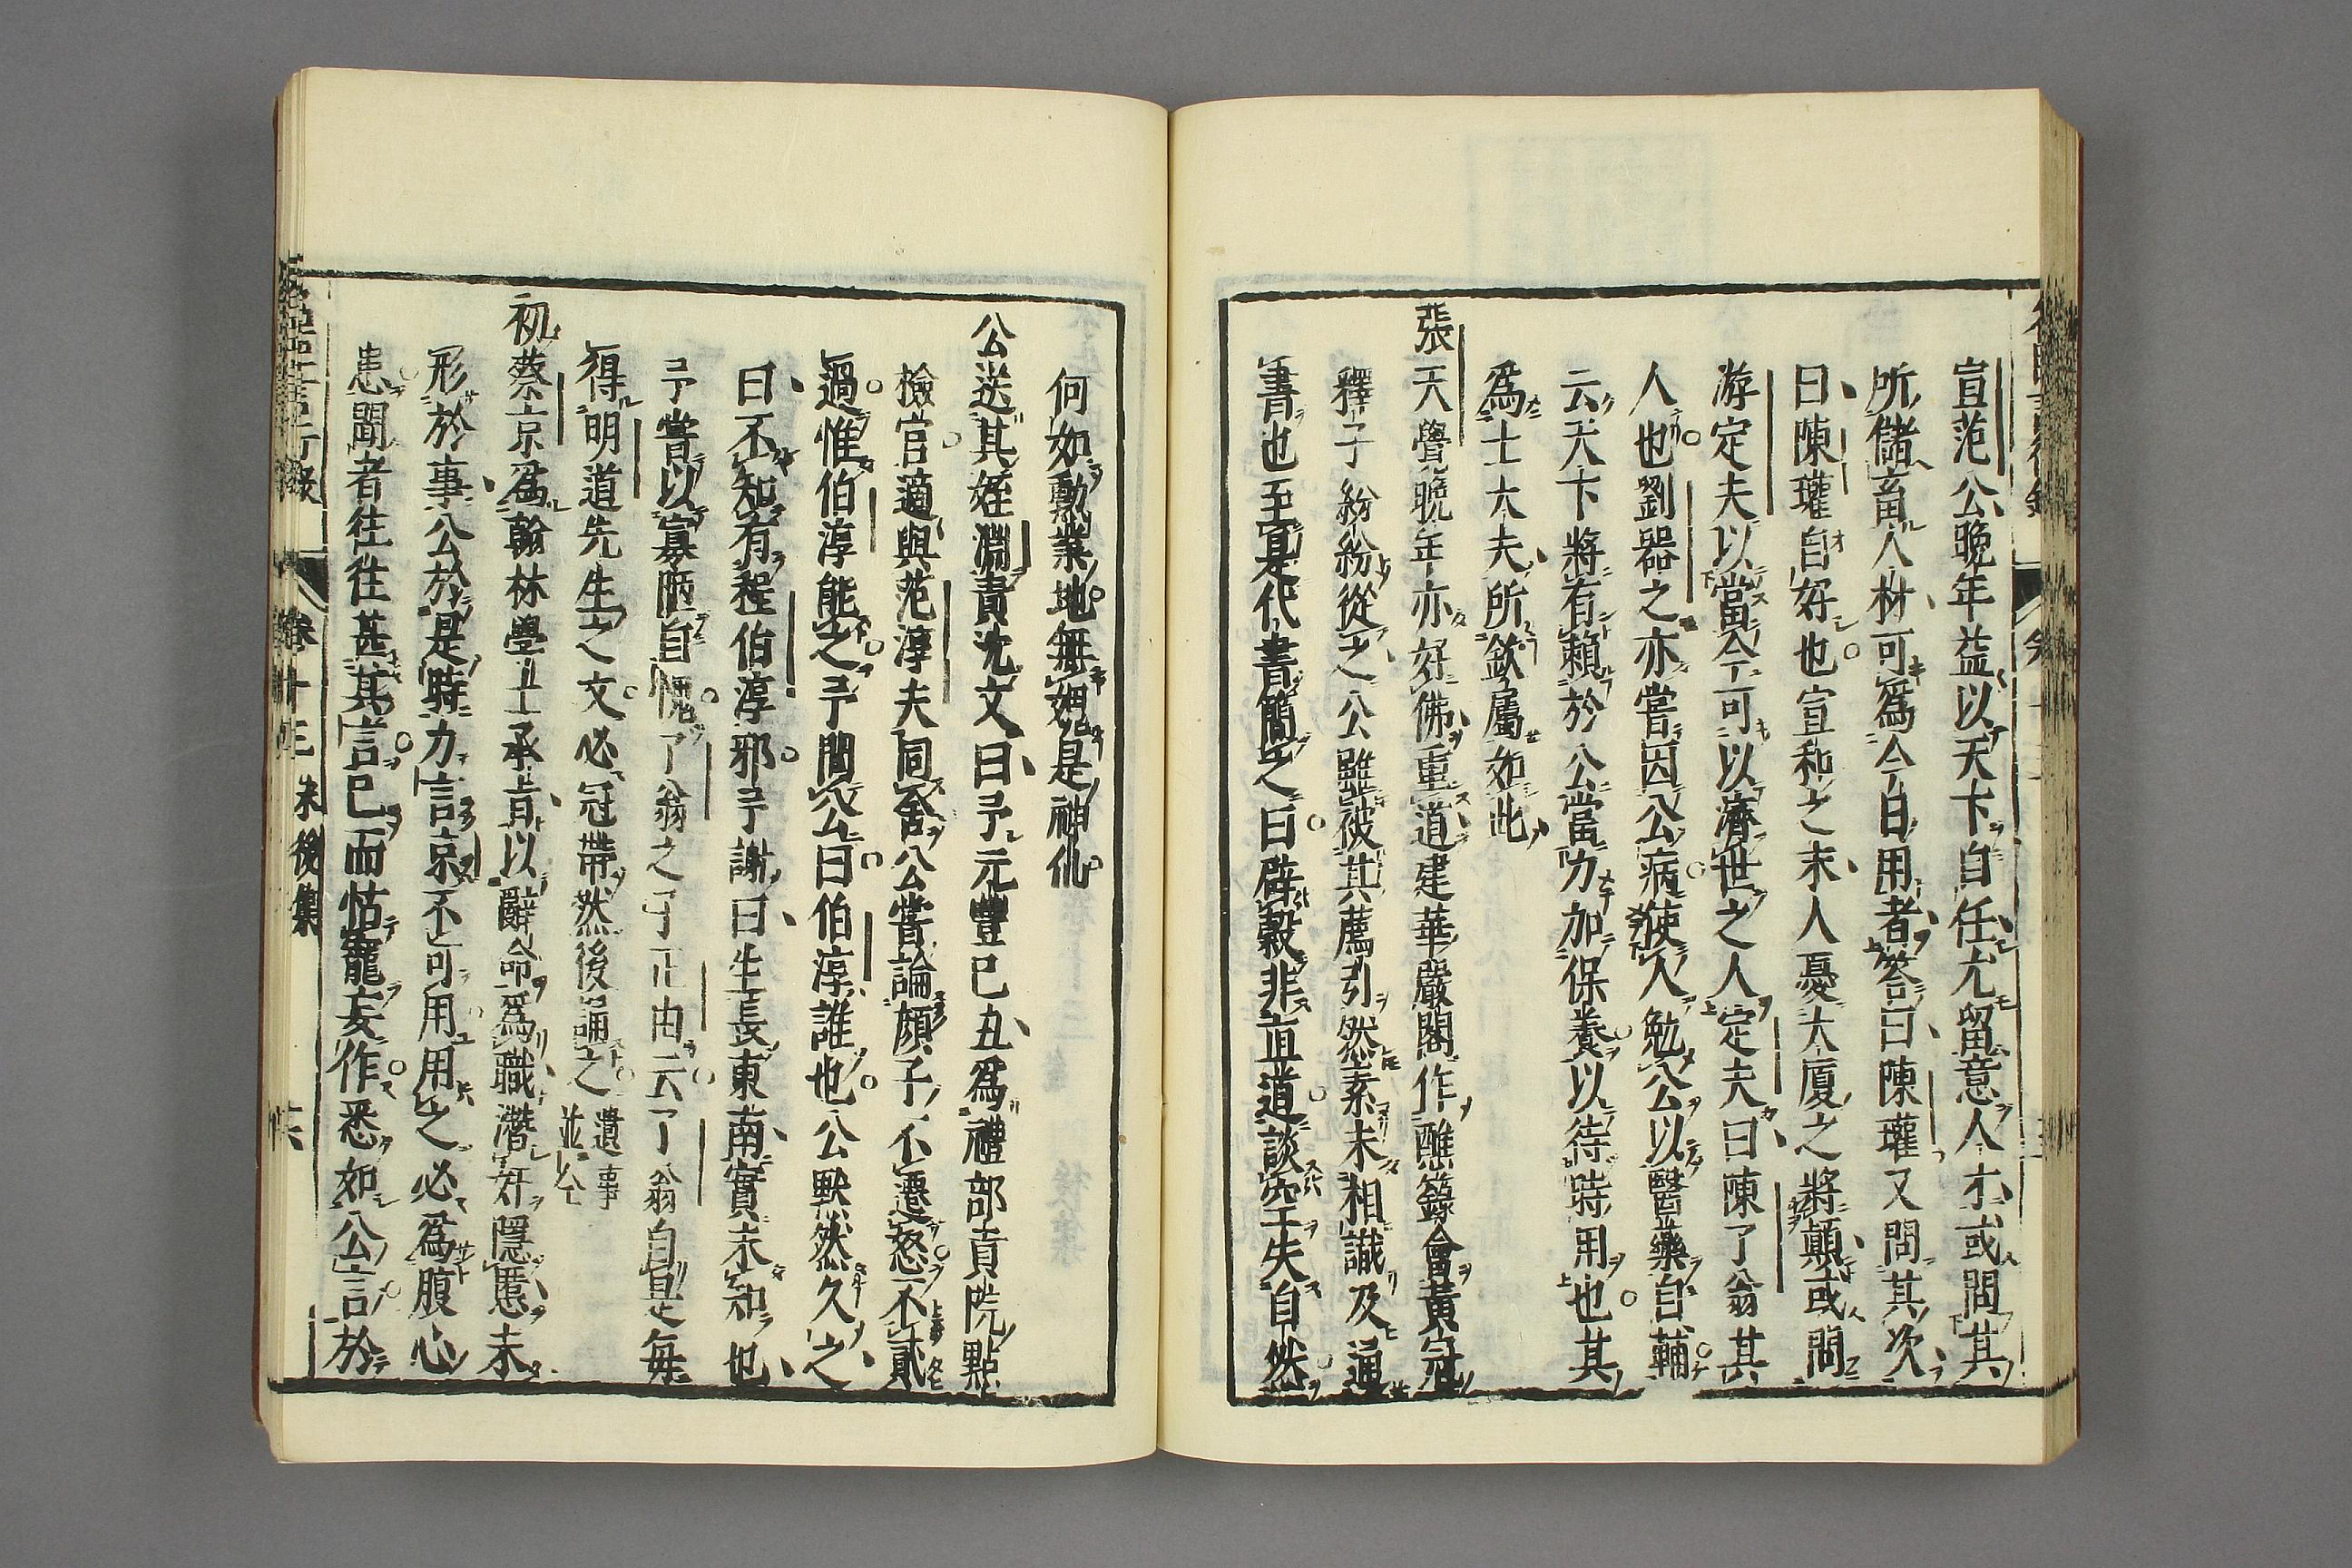 宣范公晚年益以天下自任尤留意人才或問其
所儲畜人材可爲今日用者答曰陳瓘又問其次
曰陳瓘自好也宣和之末人憂大廈之將顛或問
游定夫以當今可以濟世之人定夫曰陳了翁其
人也劉器之亦嘗因公病使人勉公以醫藥自輔
云天下將有賴於公當力加保養以待時用也其
爲士大夫所欽屬如此
張天覺晚年亦好佛重道建華嚴閣作醮籙會黃冠
釋子紛紛從之公雖被其薦引然素未相識及通
書也至寘代書簡之曰辟穀非眞道談空失自然
何如勳業地無媿是神仙
公送其姪淵責沈文曰予元豐己丑爲禮部貢院點
檢官適與范淳夫同舍公嘗論顔子不遷怒不貳
過惟伯淳能之予問公曰伯淳誰也公默然久之
曰不知有程伯淳邪予謝曰生長東南實未知也
予嘗以寡陋自愧了翁之子正由云了翁自是每
得明道先生之文必冠帶然後誦之遺事並公
初蔡京爲翰林學士承旨以辭命爲職潛奸隱慝未
形於事公於是時力言京不可用用之必爲腹心
患聞者往往甚其言已而怙寵妄作悉如公言於
卷十三 宋後集